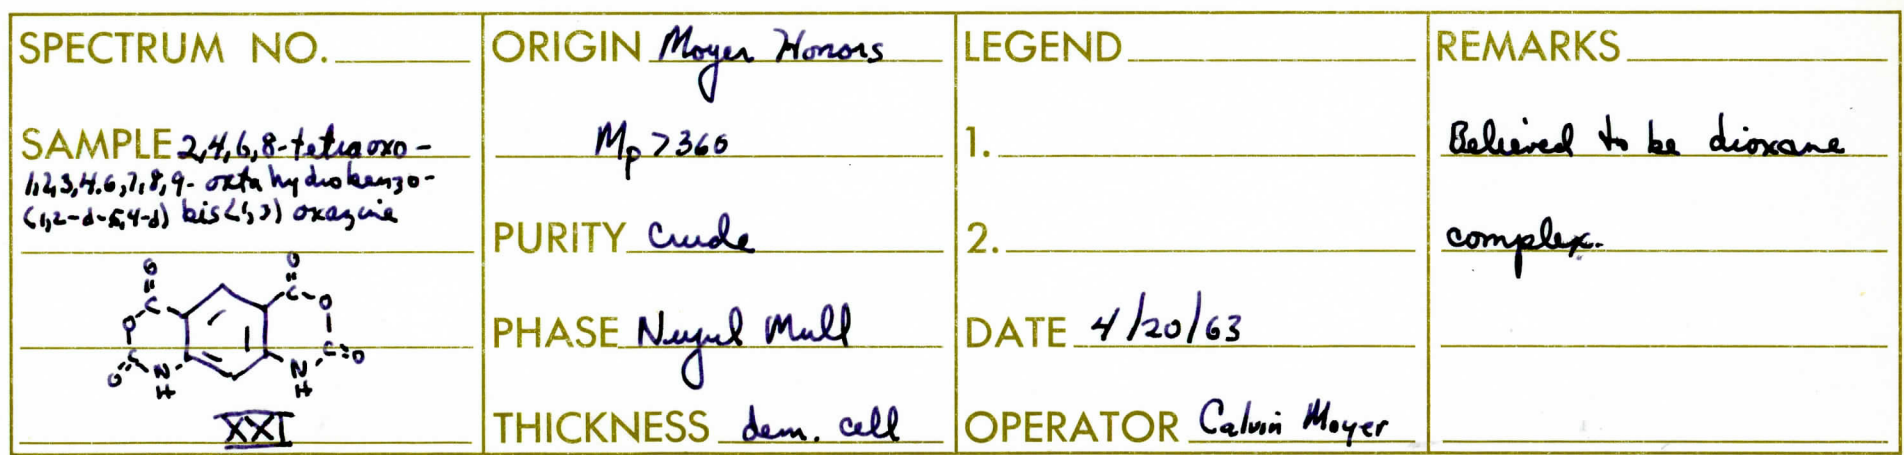 SPECTRUM NO.
SAMPLE 2,4,6,8-tetraoxo-
1,2,3,4,6,7,8,9-octahydrobenzo-
(1,2-d-5,4-d) bis(1,3) oxazine
O
C
O
C
O
O
C
O
N
H
N
H
C=O
XXI
ORIGIN Moyer Honors
Mp >360
PURITY Crude
PHASE Nujul Mull
THICKNESS dem. cell
LEGEND
1.
2.
DATE 4/20/63
OPERATOR Calvin Moyer
REMARKS
Believed to be dioxane
complex.